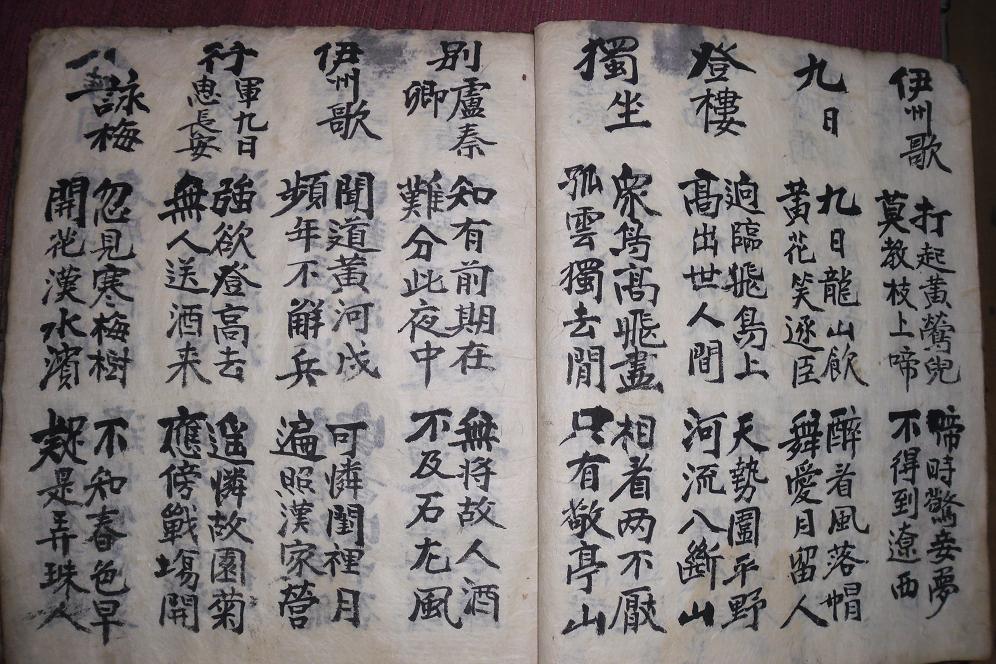 伊州歌
打起黄鶯兒
莫教枝上啼
啼時驚妾夢
不得到遼西
九日
九日龍山飲
黄花笑逐臣
醉看風落帽
舞愛月留人
登樓
迥臨飛鳥上
高出世人間
天勢圍平野
河流入斷山
獨坐
眾鳥高飛盡
孤雲獨去閒
相看两不厭
只有敬亭山
別盧秦卿
知有前期在
難分此夜中
無将故人酒
不及石尤風
伊州歌
聞道黄河戍
頻年不解兵
可憐閨裡月
遍照漢家營
行軍九日思長安
強欲登高去
無人送酒来
遥憐故園菊
應傍戰場開
詠梅
忽見寒梅樹
開花漢水濱
不知春色早
疑是弄珠人